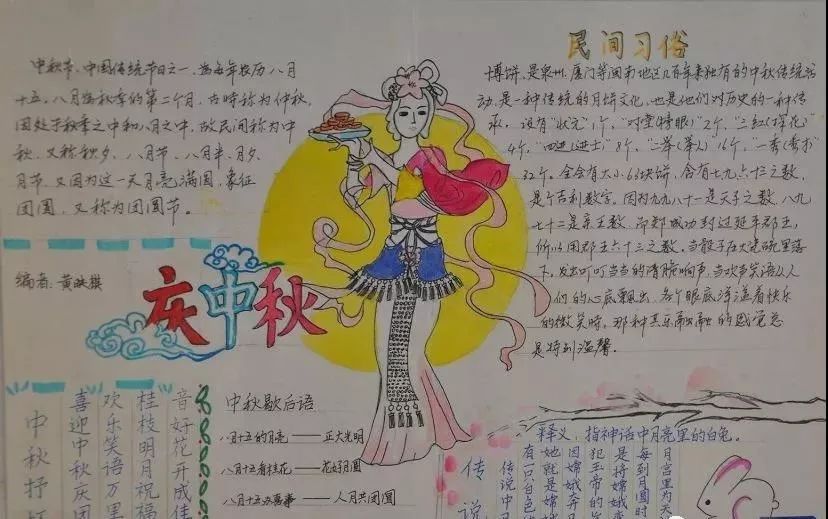 中秋节,中国传统节日之一,为每年农历八月
十五,八月为秋季的第二个月,古时称为仲秋,
因处于秋季之中和八月之中,故民间称为中
秋,又称秋夕、八月节、八月半、月夕、
月节,又因为这一天月亮满圆,象征
团圆,又称为团圆节。
编者:黄映祺
庆中秋
民间习俗
博饼,是泉州、厦门等闽南地区几百年来独有的中秋传统活
动,是一种传统的月饼文化,也是他们对历史的一种传
承,设有“状元”1个,“对堂(榜眼)”2个,“三红(探花)”
4个,“四进(进士)”8个,“二举(举人)”16个,一秀(秀才)
32个。全会有大小63块饼,含有七九六十三之数,
是个吉利数字。因为九九八十一是天子之数,八九
七十二是亲王数,而郑成功封过延平郡王,
所以用郡王六十三之数。当骰子在大瓷碗里落
下,发出叮叮当当的清脆响声,当欢声笑语从人
们的心底飘出,各个眼底洋溢着快乐
的微笑时,那种其乐融融的感觉总
是特别温馨。
中秋抒
喜迎中秋庆团
欢乐笑语万里
桂枝明月祝福
音好花开成佳
中秋歇后语
八月十五的月亮——正大光明
八月十五看桂花——花好月圆
八月十五办喜事——人月共团圆
释义:指神话中月亮里的白兔。
传说
传说中
有一只白色
她就是嫦
因嫦娥奔
犯玉帝的
是将嫦娥
每到月圆时
月宫里为天